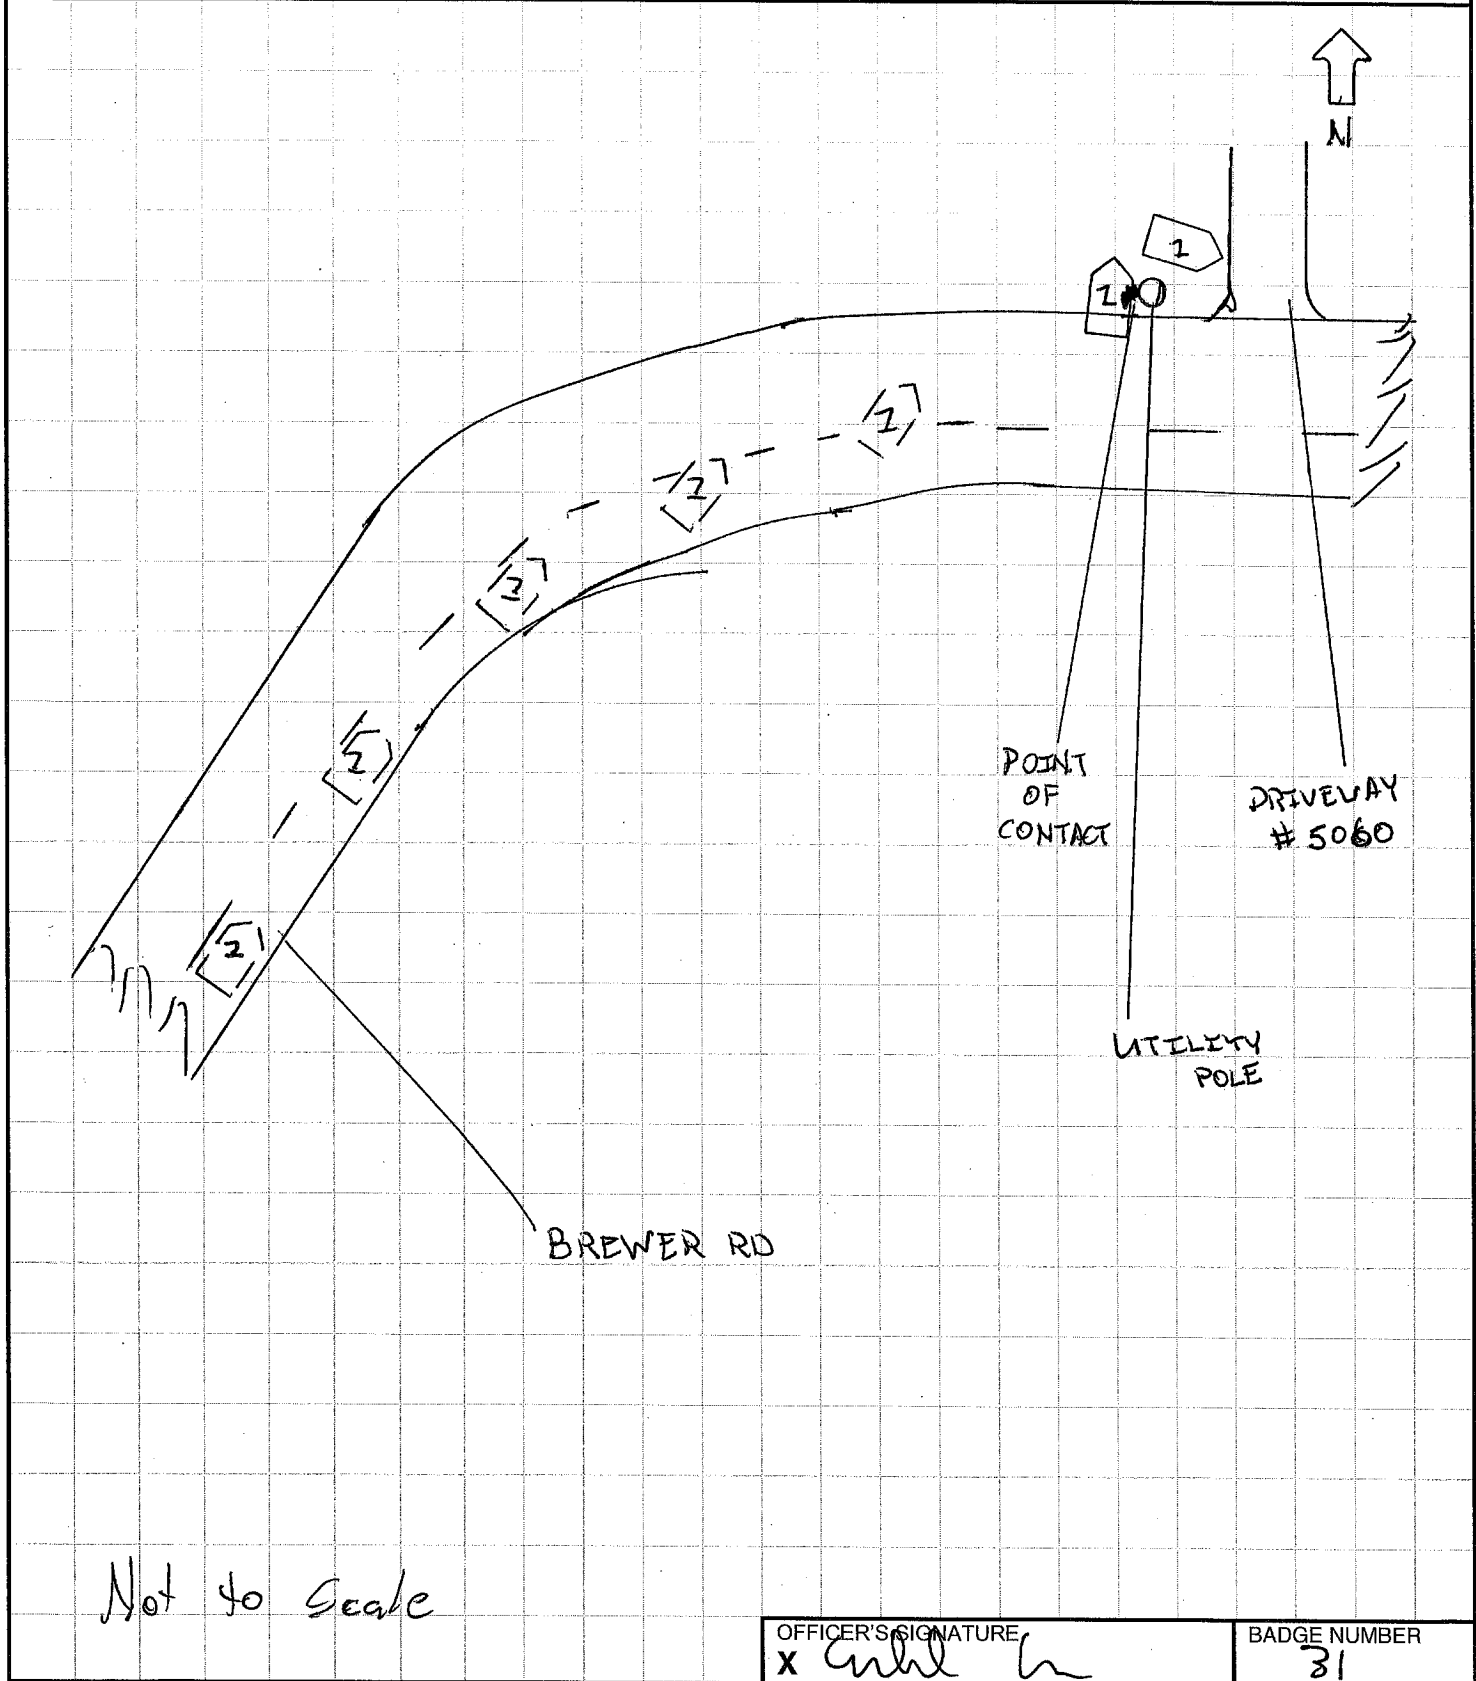 N
1
1
1
2
2
2
2
POINT
OF
CONTACT
DRIVEWAY
# 5060
UTILITY
POLE
BREWER RD
Not to Scale
OFFICER'S SIGNATURE
X
BADGE NUMBER
31